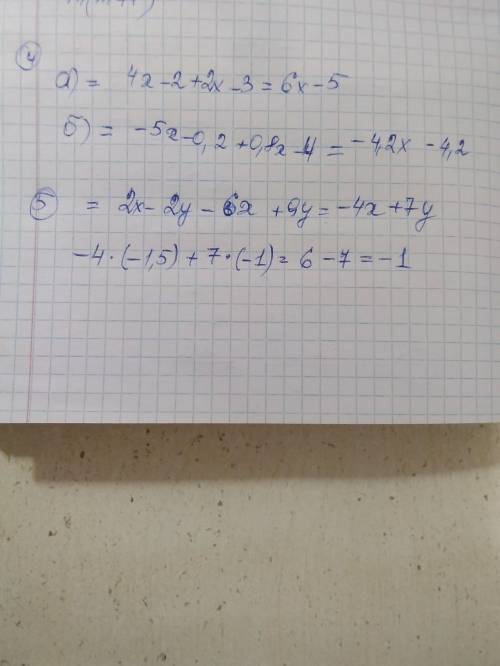 ④
а) = 4x - 2 + 2x - 3 = 6x - 5
б) = -5x - 0,2 + 0,8x - 4 = -4,2x - 4,2
⑤ = 2x - 2y - 6x + 9y = -4x + 7y
-4 · (-1,5) + 7 · (-1) = 6 - 7 = -1